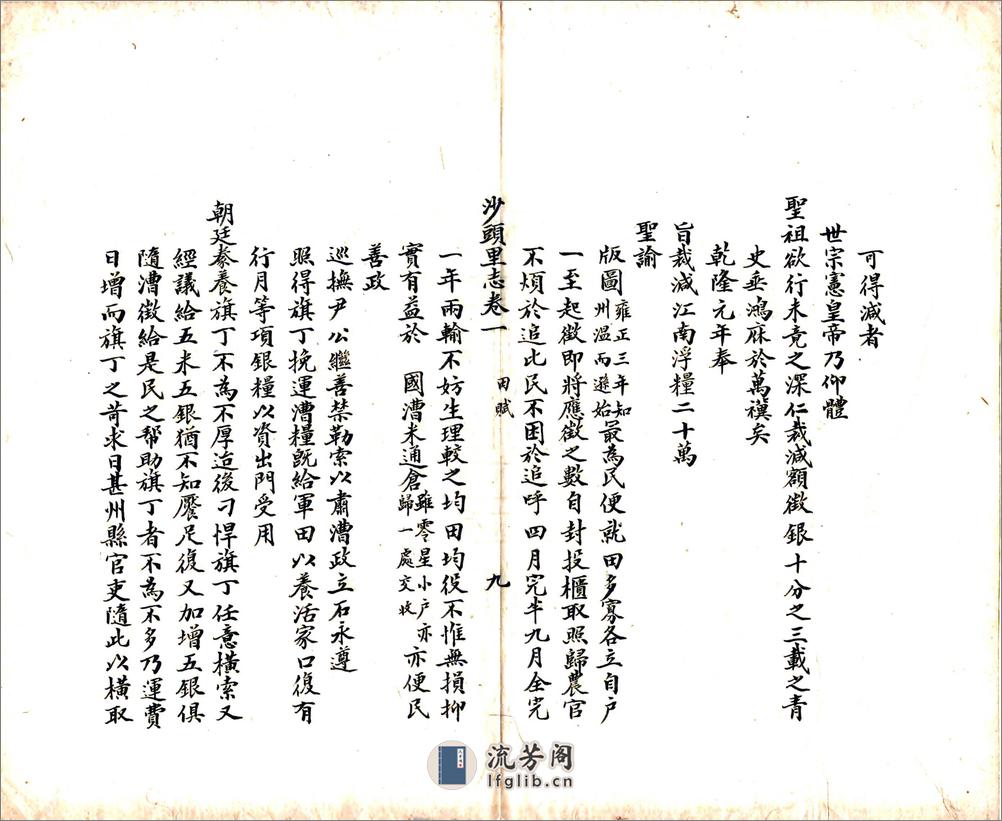 可得減者
世宗憲皇帝乃仰體
聖祖欲行未竟之深仁裁減額徵銀十分之三載之青
史垂鴻庥於萬禩矣
乾隆元年奉
旨裁減江南浮糧二十萬
聖諭
版圖雍正三年知州溫而遜始最為民便就田多寡各立自戶
一至起徵即將應徵之數自封投櫃取照歸農官
不煩於追比民不困於追呼四月完半九月全完
沙頭里志卷一 田賦 九
一年兩輸不妨生理較之均田均役不惟無損抑
實有益於 國漕米通倉雖零星小戶亦歸一處交收亦便民
善政
巡撫尹公繼善禁勒索以肅漕政立石永遵
照得旗丁挽運漕糧既給軍田以養活家口復有
行月等項銀糧以資出門受用
朝廷豢養旗丁不為不厚迨後刁悍旗丁任意橫索又
經議給五米五銀猶不知饜足復又加增五銀俱
隨漕徵給是民之幫助旗丁者不為不多乃運費
日增而旗丁之苛求日甚州縣官吏隨此以橫取
流芳阁
lfglib.cn